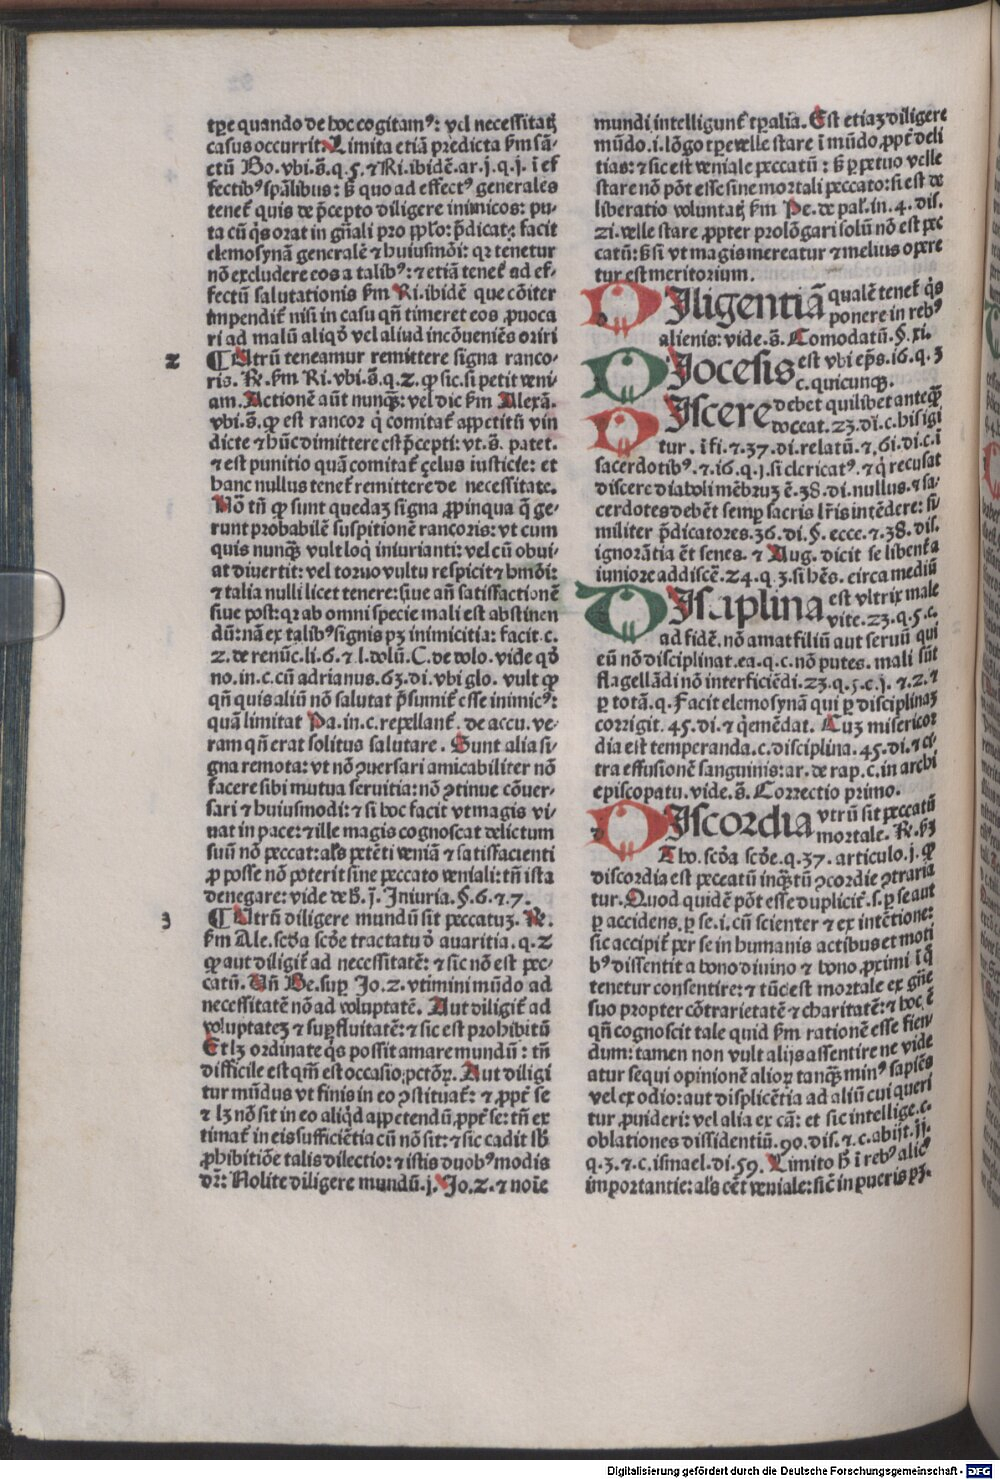 tp̄e quando de hoc cogitamꝰ: vel necessitatꝭ
casus occurrit. Limita etiā predicta s̄m sā-
ctū Bo. vbi.s̄.q.5. ⁊ Ri.ibidē.ar.j.q.j. ī ef
fectibꝰ spālibus: s̄ quo ad effectꝰ generales
tenet̄ quis de p̄cepto diligere inimicos: pu-
ta cū q̄s orat in gn̄ali pro pp̄lo: p̄dicat: facit
elemosynā generalē ⁊ huiusmōi: qꝛ tenetur
nō excludere eos a talibꝰ: ⁊ etiā tenet̄ ad ef-
fectū salutationis s̄m Ri.ibidē que cōiter
impendit̄ nisi in casu qn̄ timeret eos ꝓuoca
ri ad malū aliqd̄ vel aliud incōueniēs oriri
2 ¶ Utrū teneamur remittere signa ranco-
ris. R̄. s̄m Ri.vbi.s̄.q.2. ꝙ sic. si petit veni-
am. Actionē aūt nunqꝫ: vel dic s̄m Alexā.
vbi.s̄. ꝙ est rancor q̄ comitat̄ appetitū vin
dicte ⁊ hūc dimittere est p̄cepti: vt.s̄. patet.
⁊ est punitio quā comitat̄ çelus iusticie: et
hanc nullus tenet̄ remittere de necessitate.
Nō tn̄ ꝙ sunt quedaꝫ signa ꝓpinqua q̄ ge-
runt probabilē suspitionē rancoris: vt cum
quis nunqꝫ vult loq̄ iniurianti: vel cū obui-
at diuertit: vel toruo vultu respicit ⁊ hmōi:
⁊ talia nulli licet tenere: siue an̄ satisfactionē
siue post: qꝛ ab omni specie mali est abstinen
dū: nā ex talibꝰ signis pꝫ inimicitia: facit.c.
2.de renūc.li.6. ⁊ l. dolū. C. de dolo. vide qd̄
no. in.c. cū adrianus.63.di. vbi glo. vult ꝙ
qn̄ quis aliū nō salutat p̄sumit̄ esse inimicꝰ:
quā limitat Pa. in.c. repellant̄. de accu. ve-
ram qn̄ erat solitus salutare. Sunt alia si-
gna remota: vt nō ꝯuersari amicabiliter nō
facere sibi mutua seruitia: nō ꝯtinue cōuer-
sari ⁊ huiusmodi: ⁊ si hoc facit vt magis vi-
uat in pace: ⁊ ille magis cognoscat delictum
suū nō peccat: al̄s petēti veniā ⁊ satisfacienti
ꝓ posse nō poterit sine peccato veniali: tn̄ ista
denegare: vide de h̄.j. Iniuria. §.6. ⁊ 7.
3 ¶ Utrū diligere mundū sit peccatuꝫ. R̄.
s̄m Ale. scd̄a scd̄e tractatu d̄ auaritia.q.2
ꝙ aut diligit̄ ad necessitatē: ⁊ sic nō est pec-
catū. Un̄ Be. sup̄ Io.2. vtimini mūdo ad
necessitatē nō ad voluptatē. Aut diligit̄ ad
voluptateꝫ ⁊ suꝑfluitatē: ⁊ sic est prohibitū
Et lꝫ ordinate q̄s possit amare mundū: tn̄
difficile est qm̄ est occasio pctōꝝ. Aut diligi
tur mūdus vt finis in eo ꝯstituat̄: ⁊ ꝓpt̄ se
⁊ lꝫ nō sit in eo aliq̄d appetendū ꝓpt̄ se: tn̄ ex
timat̄ in eis sufficiētia cū nō sit: ⁊ sic cadit sb̄
ꝓhibitiōe talis dilectio: ⁊ istis duobꝰ modis
dr̄: Nolite diligere mundū.j. Io.2. ⁊ noīe
mundi intelligunt̄ tꝑalia. Est etiaꝫ diligere
mūdo.i. lōgo tp̄e velle stare ī mūdo ꝓpt̄ deli
tias: ⁊ sic est veniale peccatū: s̄ ꝑpetuo velle
stare nō pōt esse sine mortali peccato: si est de
liberatio voluntatꝭ s̄m Pe. de pal. in.4.dis.
21. velle stare ꝓpter prolōgari solū nō est pec
catū: s̄ si vt magis mereatur ⁊ melius opere
tur est meritorium.
DIligentiā qualē tenet̄ q̄s
ponere in rebꝰ
alienis: vide.s̄. Comodatū. §.xi.
DIocesis est vbi ep̄s.16.q.3
c. quicunqꝫ.
DIscere debet quilibet anteqꝫ
doceat.23.di.c. his igi
tur. ī fi. ⁊.37.di. relatū. ⁊.61.di.c. ī
sacerdotibꝰ. ⁊.16.q.j. si clericatꝰ. ⁊ q̄ recusat
discere diaboli mēbruꝫ ē.38.di. nullus. ⁊ sa-
cerdotes debēt semꝑ sacris lr̄is intēdere: si-
militer p̄dicatores.36.di. §. ecce. ⁊.38.dis.
ignorātia ēt senes. ⁊ Aug. dicit se libent̄ a
iuniore addiscē.24.q.3. si hēs. circa mediū
DIsciplina est vltrix male
vite.23.q.5.c.
ad fidē. nō amat filiū aut seruū qui
eū nō disciplinat. ea.q.c. nō putes. mali sūt
flagellādi nō interficiēdi.23.q.5.c.j. ⁊.2. ⁊
ꝑ totā.q. Facit elemosynā qui ꝑ disciplinaꝫ
corrigit.45.di. ⁊ q̄ emēdat. Cuꝫ misericor
dia est temperanda.c. disciplina.45.di. ⁊ ci-
tra effusionē sanguinis: ar. de rap.c. in archi
episcopatu. vide.s̄. Correctio primo.
DIscordia vtrū sit peccatū
mortale. R̄. s̄m
Tho. scd̄a scd̄e.q.37. articulo.j. ꝙ
discordia est peccatū inqꝫtū ꝯcordie ꝯtraria
tur. Quod quidē pōt esse duplicit̄.s. ꝑ se aut
ꝑ accidens. ꝑ se.i. cū scienter ⁊ ex intētione:
sic accipit̄ per se in humanis actibus et moti
bꝰ dissentit a bono diuino ⁊ bono ꝓximi ī q̄
tenetur consentire: ⁊ tūc est mortale ex gn̄e
suo propter cōtrarietatē ⁊ charitatē: ⁊ hoc ē
qn̄ cognoscit tale quid s̄m rationē esse fien
dum: tamen non vult alijs assentire ne vide
atur sequi opinionē alioꝝ tanqꝫ minꝰ sapiēs
vel ex odio: aut displicētia ad aliū cui queri
tur ꝓuideri: vel alia ex cā: et sic intellige.c.
oblationes dissidentiū.90.dis. ⁊.c. abijt.jj.
q.3. ⁊.c. ismael.di.59. Limito h̄ ī rebꝰ alicꝰ
importantie: al̄s eēt veniale: sic̄ in pueris pꝫ.
Digitalisierung gefördert durch die Deutsche Forschungsgemeinschaft - DFG